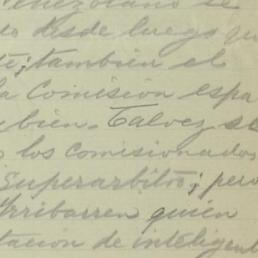 Venezolano se
o desde luego qu
te; también el
la Comisión espa
bien. Talvez se
los comisionados
Superarbitro; pero
Yrribarren quién
tacion de inteligent